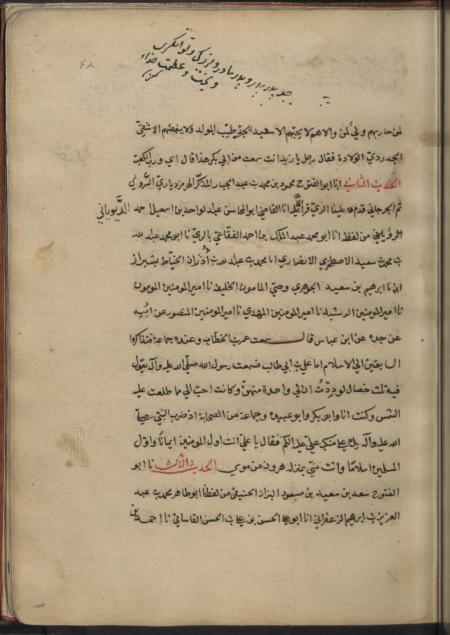 لمن حاربهم وليّ لمن والاهم لا يحبّهم الا سعيد الجدّ طيّب المولد ولا يبغضهم الا شقيّ
الجدّ رديّ الولادة فقال رجل يا زيد انت سمعت من ابي بكر هذا قال اي وربّ الكعبة
الحديث الثاني انا ابو الفتوح محمود بن محمد بن عبد الجبار المذكّر الهرمزدياري السروي
ثم الجرجاني قدم علينا الريّ قراءة عليه انا القاضي ابو المحاسن عبد الواحد بن اسمعيل احمد الروياني
من لفظه انا ابو محمد عبد الملك بن احمد الفقّاعي بالريّ نا ابو محمد عبد الله
بن محمد سعيد الاصطخري الانصاري نا محمد بن عبد الله بن اذران الخيّاط بشيراز
نا ابرهيم بن سعيد الجوهري وصيّ المامون الخليفة نا امير المومنين المومون
نا امير المومنين الرشيد نا امير المومنين المهدي نا امير المومنين المنصور عن ابيه
عن جده عن ابن عباس قال سمعت عمر بن الخطاب وعنده جماعة فتذاكروا
السابقين الى الاسلام اما علي بن ابي طالب فسمعت رسول الله صلى الله عليه وآله يقول
فيه ثلث خصال لوددت ان لي واحدة منهنّ وكانت احب الي مما طلعت عليه
الشمس وكنت انا وابو بكر وابو عبيدة وجماعة من الصحابة اذ ضرب النبي صلى
الله عليه وآله يده على منكب علي فقال يا علي انت اول المومنين ايمانا واول
المسلمين اسلاما وانت منّي بمنزلة هرون من موسى الحديث الثالث نا ابو
الفتوح سعد بن سعيد بن مسعود البزاز الحنيفي من لفظه انا ابو طاهر محمد بن عبد
العزيز بن ابرهيم الزعفراني انا ابو علي الحسن بن علي بن الحسن القاساني نا احمد بن